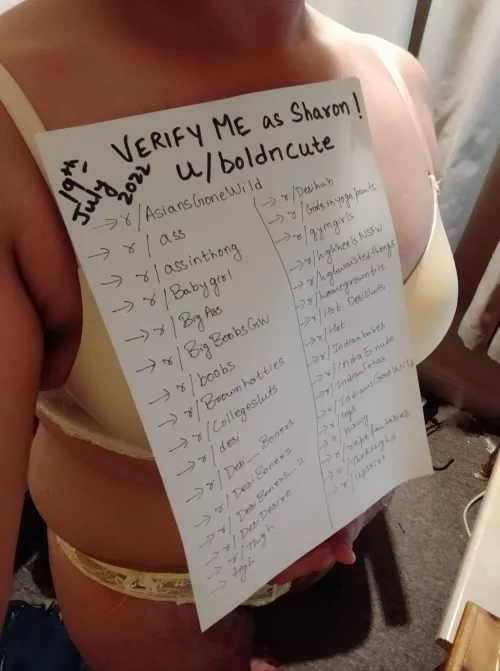 VERIFY ME as Sharon!
19th July 2022
u/boldncute
→ r/AsiansGoneWild
→ r/ass
→ r/assinthong
→ r/Babygirl
→ r/Big Ass
→ r/BigBoobsGW
→ r/boobs
→ r/Brownhotties
→ r/Collegesluts
→ r/desi
→ r/Desi_Boners
→ r/DesiBoners
→ r/DesiBoners_2
→ r/DesiDesire
→ r/Thigh
→ r/Desihub
→ r/Girls in yoga pants
→ r/gymgirls
→ r/highheelsNSFW
→ r/highwaistedthongs
→ r/homegrowntits
→ r/Hot Desisluts
→ r/Hot
→ r/Indianbabes
→ r/India
→ r/IndianFetish
→ r/IndiansGoneWild
→ r/legs
→ r/pawg
→ r/
→ r/
→ r/upskirt